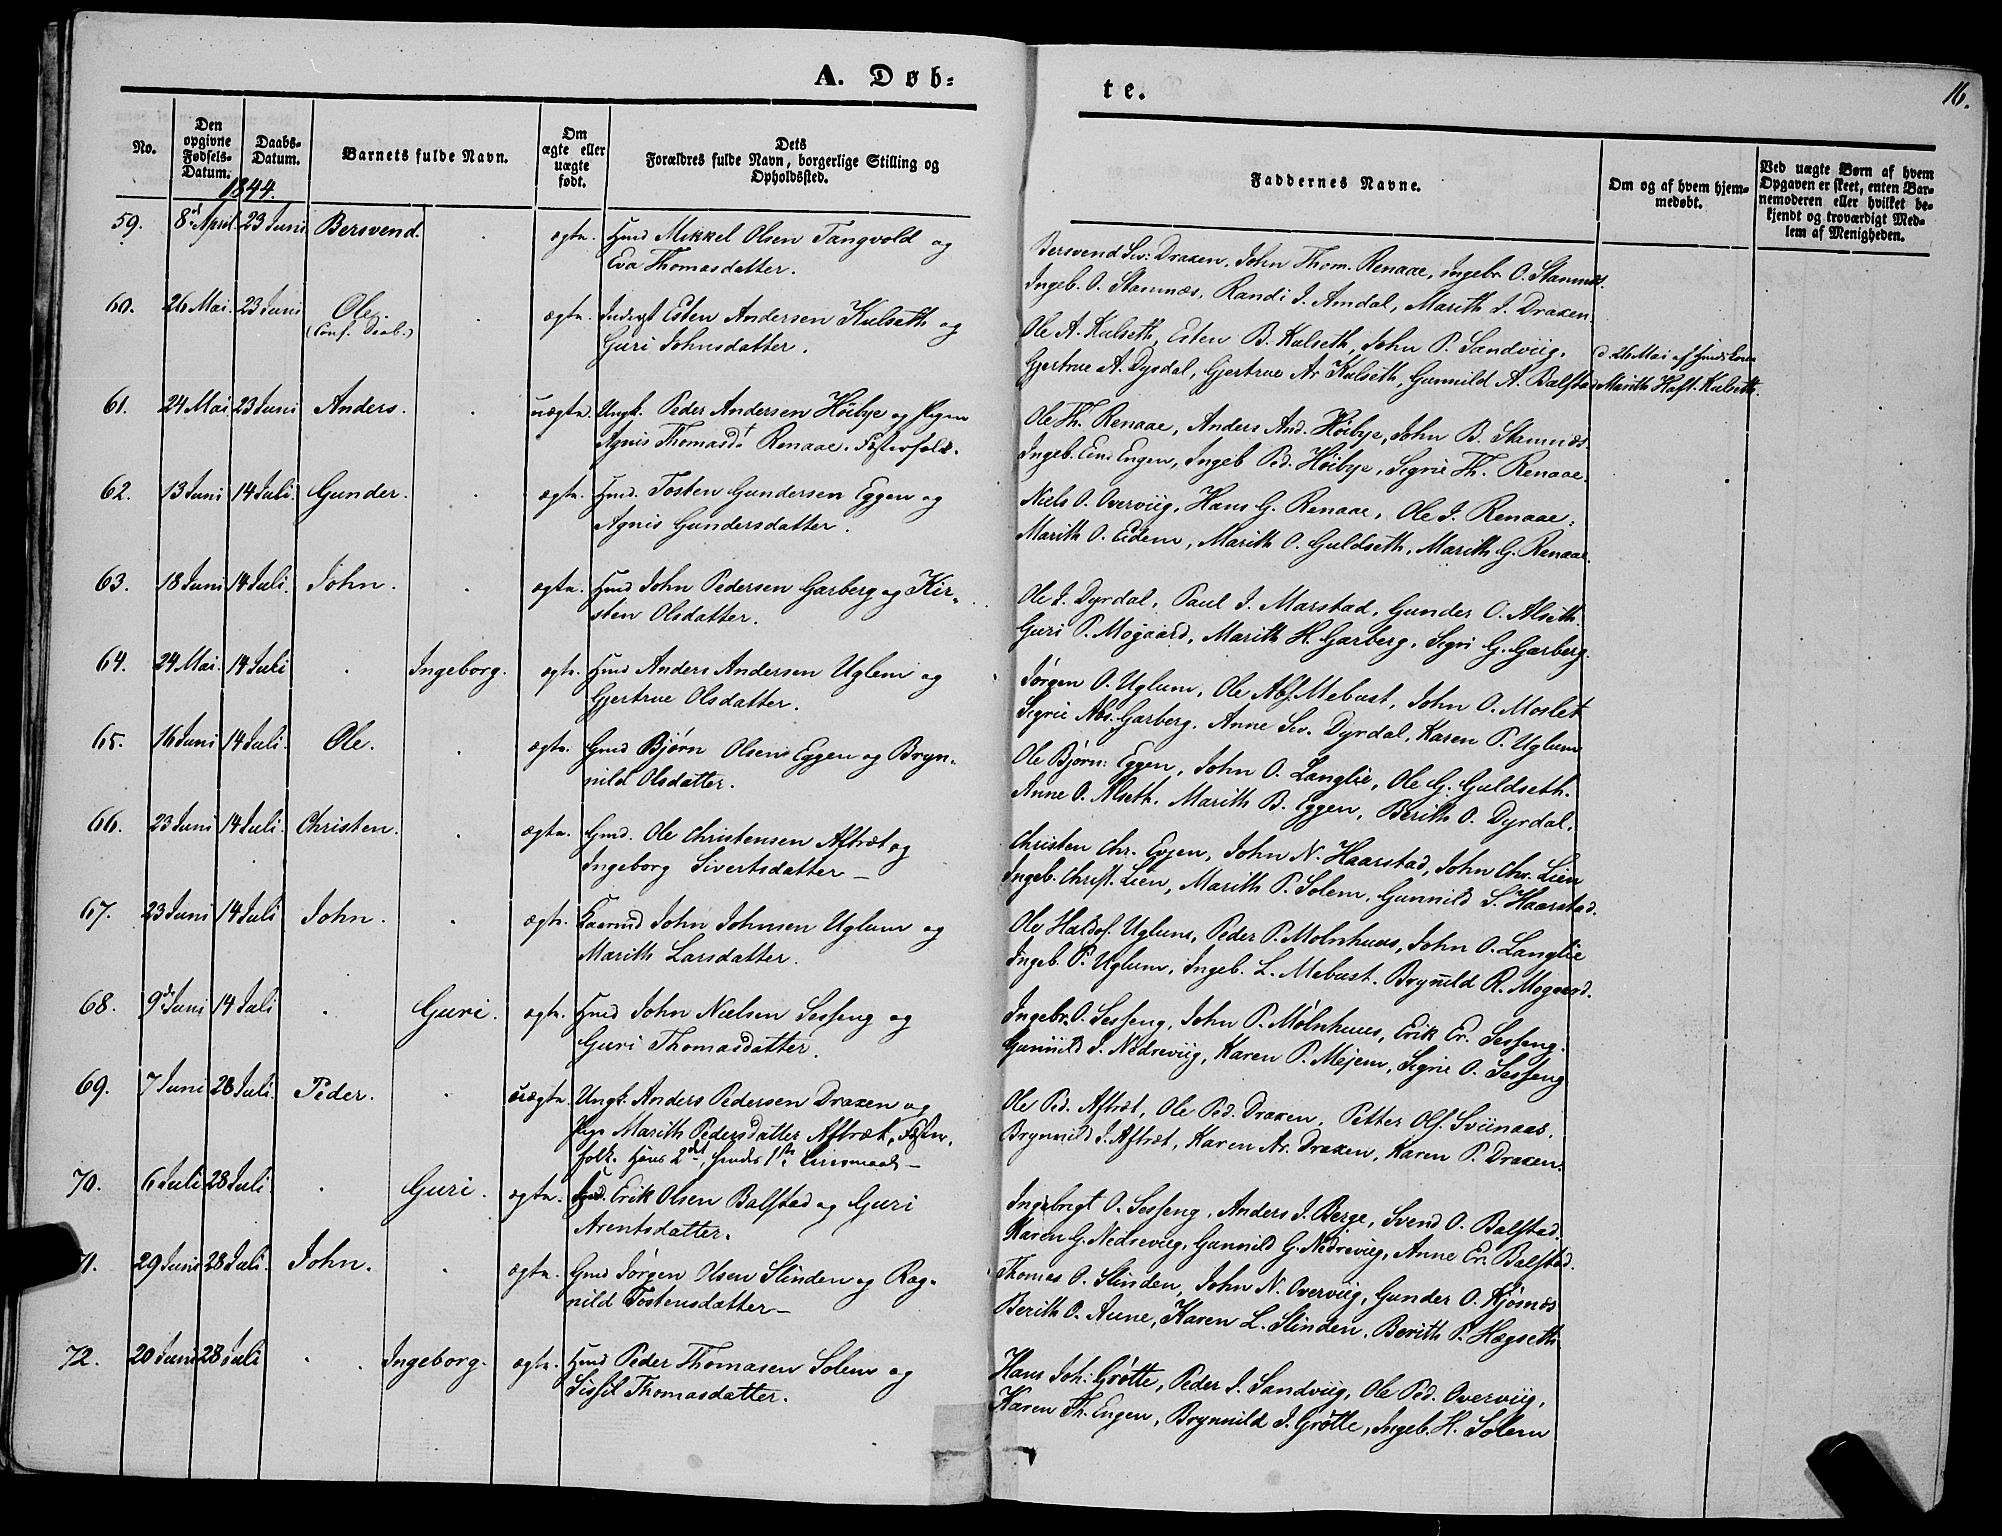 A. Døb-
te.
16.
No.
Den opgivne Fødsels-Datum.
Daabs-Datum.
Barnets fulde Navn.
Om ægte eller uægte født.
Dets Forældres fulde Navn, borgerlige Stilling og Opholdssted.
Faddernes Navne.
Om og af hvem hjem-medøbt.
Ved uægte Børn af hvem Opgaven er skeet, enten Bar-nemoderen eller hvilket be-kjendt og troværdigt Med-lem af Menigheden.
1844.
59. 8de April. 23 Juni Bersvend. ægte. Hmd Mikkel Olsen Tangvold og
Eva Thomasdatter.
Bersvend Siv: Draxen, John Thom. Renaae, Ingebr. O. Stamnes.
Ingeb. O. Stamnæs, Randi I. Amdal, Marith I. Draxen.
60. 26 Mai. 23 Juni Ole. ægte. Esten Andersen Kulseth og
(Conf. Daab.) Guri Johnsdatter.
Ole A. Kulseth, Esten B. Kulseth, John P. Sandviig. d. 26 Mai af
Gjertrue A. Dyrdal, Gjertrue Ar Kulseth, Gunnild A. Balstad Marith Haft. Kulseth.
61. 24 Mai 23 Juni Anders. uægte. Ungk. Peder Andersen Höibye og Pigen
Agnis Thomasdt Renaae.
Ole Th. Renaae, Anders And. Höibye, John B. Stamnæs
Ingeb. Eend Engen, Ingeb Ped. Höibye, Segrie Th. Renaae.
62. 13 Juni 14 Juli. Gunder. ægte. Hmd. Tosten Gundersen Eggen og
Agnis Gundersdatter.
Niels O. Overviig, Hans G. Renaae, Ole I. Renaae.
Marith O. Eidem, Marith O. Guldseth, Marith G. Renaae.
63. 18 Juni 14 Juli. John. ægte. Hmd John Pedersen Garberg og Kir-
sten Olsdatter.
Ole I. Dyrdal, Paul I. Marstad, Gunder O. Alseth.
Guri P. Mogaard, Marith H. Garberg, Segri G. Garberg.
64. 24 Mai. 14 Juli Ingeborg. ægte. Hmd Anders Andersen Uglem og
Gjertrue Olsdatter.
Jørgen O. Uglum, Ole Abf. Mebust, John O. Moslet
Segrie Abs. Garberg, Anne Siv. Dyrdal, Karen P. Uglum
65. 16 Juni 14 Juli. Ole. ægte. Gmd Bjørn Olsen Eggen og Bryn-
nild Olsdatter.
Ole Bjørn: Eggen, John O. Langlie, Ole G. Guldseth.
Anne O. Alseth. Marith B. Eggen, Berith O. Dyrdal.
66. 23 Juni 14 Juli. Christen. ægte. Gmd. Ole Christensen Aftræt og
Ingeborg Sivertsdatter –
Christen Chr. Evjen, John N. Haarstad, John Chr. Lien
Ingeb. Christ. Lien, Marith P. Solem, Gunnild S. Haarstad.
67. 23 Juni 14 Juli John. ægte. John Johnsen Uglum og
Marith Larsdatter.
Ole Haldos. Uglum, Peder P. Molnhuus, John O. Langlie
Ingeb. P. Uglum, Ingeb. L. Mebust. Brynild R. Mogaard.
68. 9de Juni 14 Juli Guri. ægte. Hmd John Nielsen Sesseng og
Guri Thomasdatter.
Ingebr. O. Sesseng, John P. Mölnhuus, Erik Er. Sesseng.
Gunnild I. Nedreviig, Karen P. Mejem, Segrie O. Sesseng
69. 7 Juni 28 Juli. Peder. uægte. Ungk. Anders Pedersen Draxen og
Marith Pedersdatter Aftræt,
folk. Hans 2det, hendes 1ste Leiermaal –
Ole Ped. Aftræt, Ole Ped. Draxen, Petter Olf. Sviinaas.
Brynnild I. Aftræt, Karen Ar. Draxen, Karen P. Draxen.
70. 6 Juli 28 Juli. Guri. ægte. Erik Olsen Balstad og Guri
Arentsdatter.
Ingebrigt O. Sesseng, Anders I. Berge, Svend O. Balstad.
Karen G. Nedreviig, Gunnild G. Nedreviig, Anne Er. Balstad.
71. 29 Juni 28 Juli. John. ægte. Gmd Jørgen Olsen Slinden og Rag-
nild Tostensdatter –
Thomas O. Slinden, John N. Overviig, Gunder O. Kjösnæs
Berith O. Aune, Karen L. Slinden, Berith P. Hægseth.
72. 20 Juni 28 Juli Ingeborg. ægte. Hmd Peder Thomasen Solem og
Sissil Thomasdatter.
Hans Joh: Grötte, Peder I. Sandviig, Ole Ped. Overviig,
Karen Th. Engen, Brynnild I. Grötte, Ingeb. H. Solem